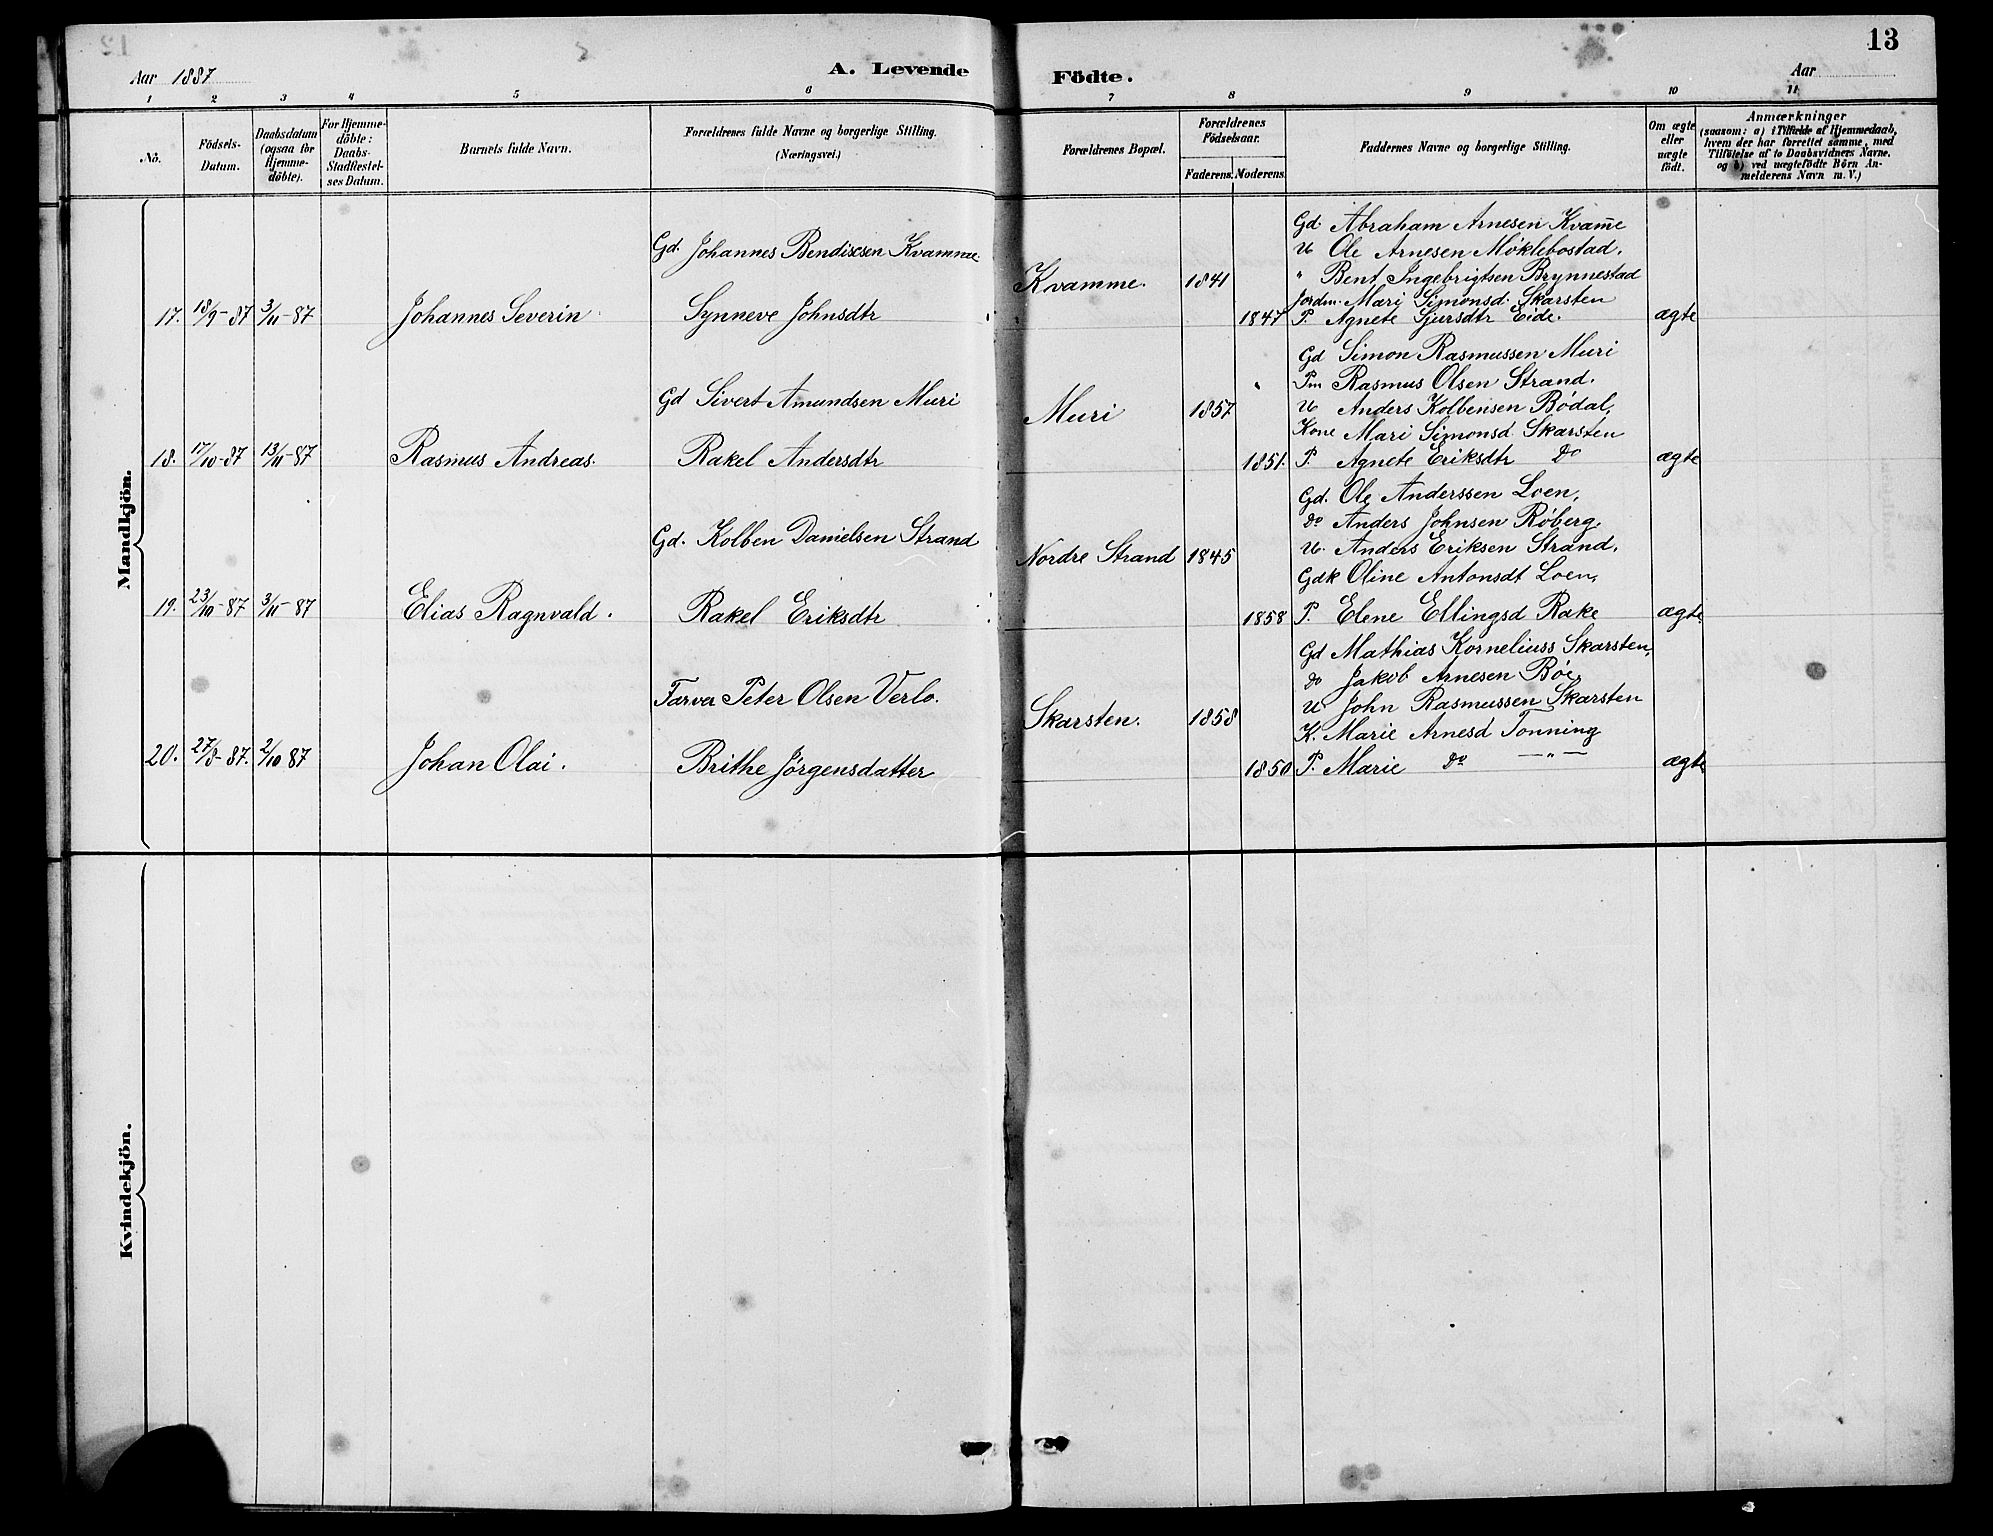 13
Aar 1887
A. Levende
Födte.
Aar
1 2 3 4 5 6 7 8 9 10 11
No.
Födsels-
Datum.
Daabsdatum
(ogsaa for
Hjemme-
döbte).
For Hjemme-
döbte:
Daabs-
Stadfæstel-
ses Datum.
Barnets fulde Navn.
Forældrenes fulde Navne og borgerlige Stilling.
(Næringsvei.)
Forældrenes Bopæl.
Forældrenes
Födselsaar.
Faderens. Moderens.
Faddernes Navne og borgerlige Stilling.
Om ægte
eller
uægte
födt.
Anmærkninger
(saasom: a) i Tilfælde af Hjemmedaab,
hvem der har forrettet samme, med
Tilföielse af to Daabsvidners Navne,
og b) ved uægtefödte Börn An-
melderens Navn m. V.)
Mandkjön.
Gd. Johannes Bendixsen Kvamme.
Kvamme. 1841
Gd. Abraham Arnesen Kvam̄e
U Ole Arnesen Møklebostad.
" Bent Ingebrigtsen Brynnestad
Jordm. Mari Simonsd. Skarsten
17. 18/9-87 3/11-87 Johannes Severin Synneve Johnsdtr 1847 P. Agnete Sjursdtr Eide. ægte
Gd Sivert Amundsen Muri
Muri 1857
Gd Simon Rasmussen Muri
Pm Rasmus Olsen Strand.
U Anders Kolbensen Bødal,
Kone Mari Simonsd. Skarsten
18. 17/10-87 13/11-87 Rasmus Andreas. Rakel Andersdtr 1851. P. Agnete Eriksdtr Do ægte
Gd. Kolben Danielsen Strand
Nordre Strand 1845
Gd. Ole Anderssen Loen,
Do Anders Johnsen Røberg.
U. Anders Eriksen Strand.
Gdk Oline Antonsdt Loen,
19. 23/10-87 3/11-87 Elias Ragnvald. Rakel Eriksdtr 1858 P. Elene Ellingsd Rake ægte
Farver Peter Olsen Verlo.
Skarsten. 1858
Gd Mathias Korneliuss Skarsten,
Do Jakob Arnesen Bøe,
U. John Rasmussen Skarsten
K. Marie Arnesd Tonning
20. 27/8-87. 2/10 87 Johan Olai. Brithe Jørgensdatter 1850 P. Marie Do —"— ægte
Kvindekjön.